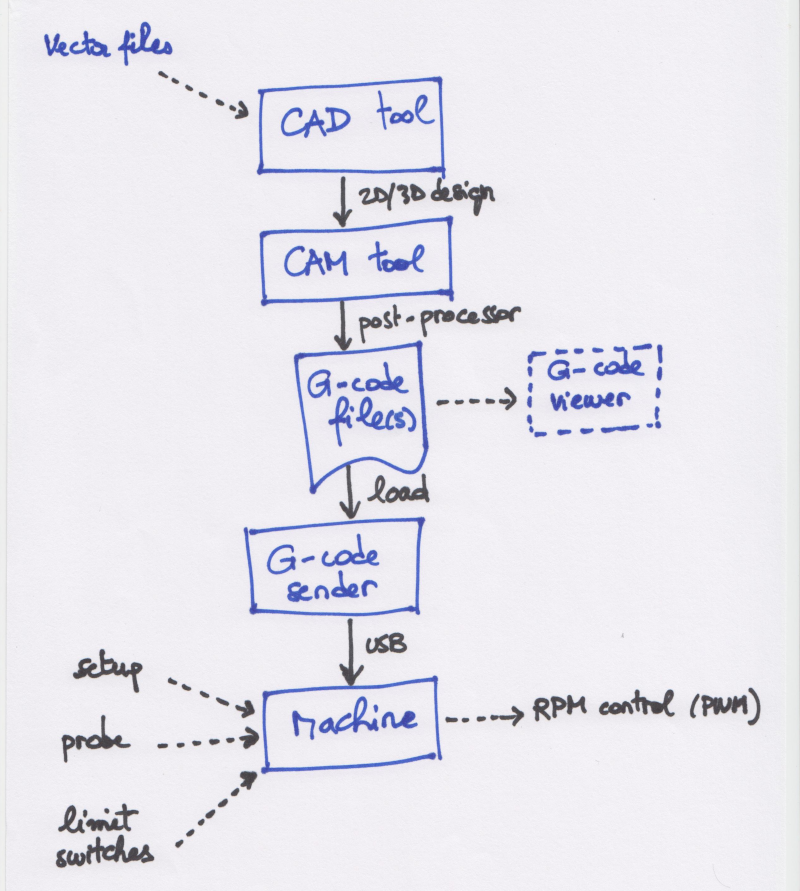 Vector files
CAD tool
2D/3D design
CAM tool
post-processor
G-code
file(s)
G-code
viewer
load
G-code
sender
USB
setup
probe
limit
switches
Machine
RPM control (PWM)